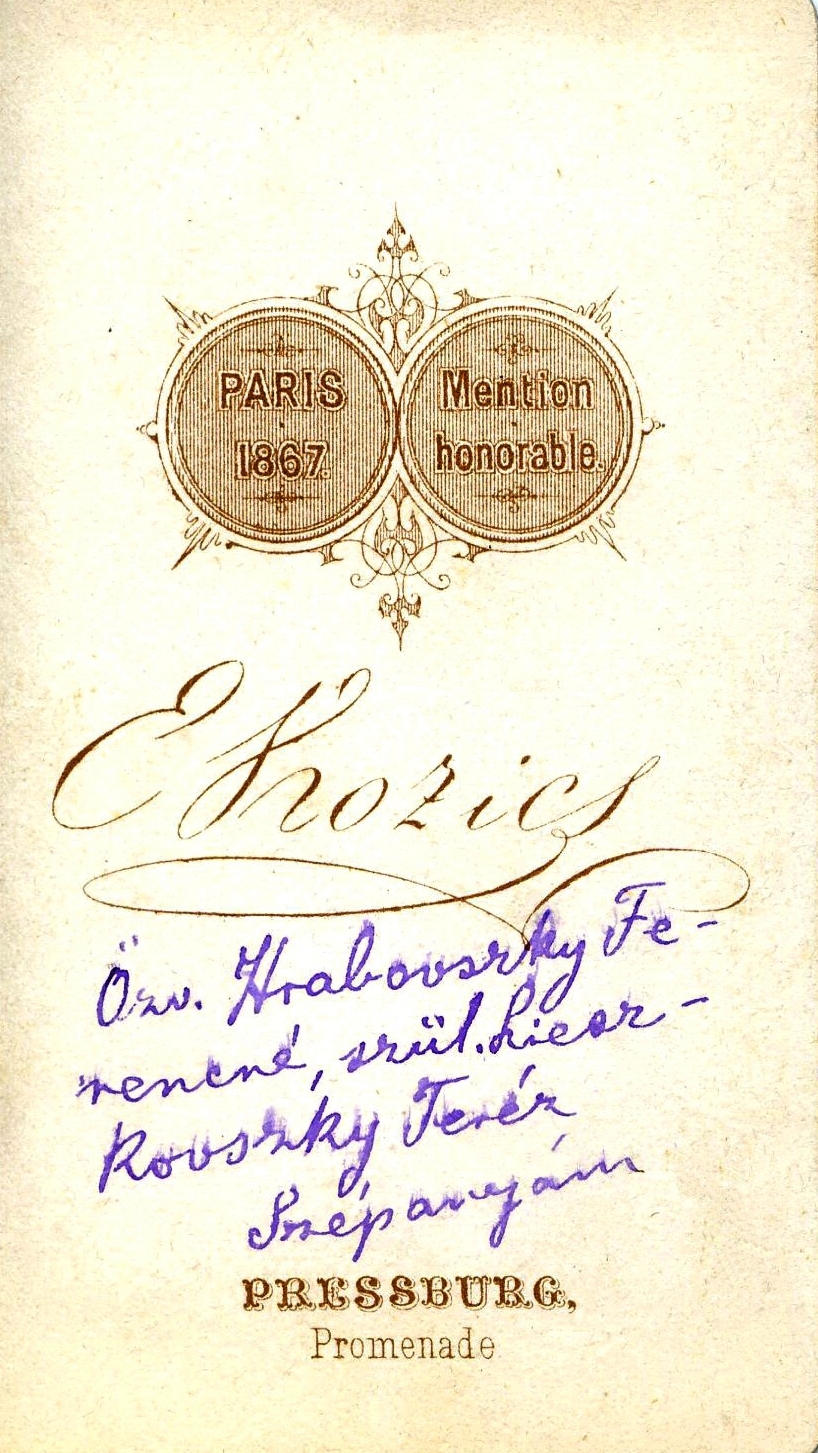 PARIS
1867.
Mention
honorable.
E Kozics
Özv. Hrabovszky Fe-
rencné, szül. Liesz-
kovszky Teréz
Szépanyám
PRESSBURG,
Promenade